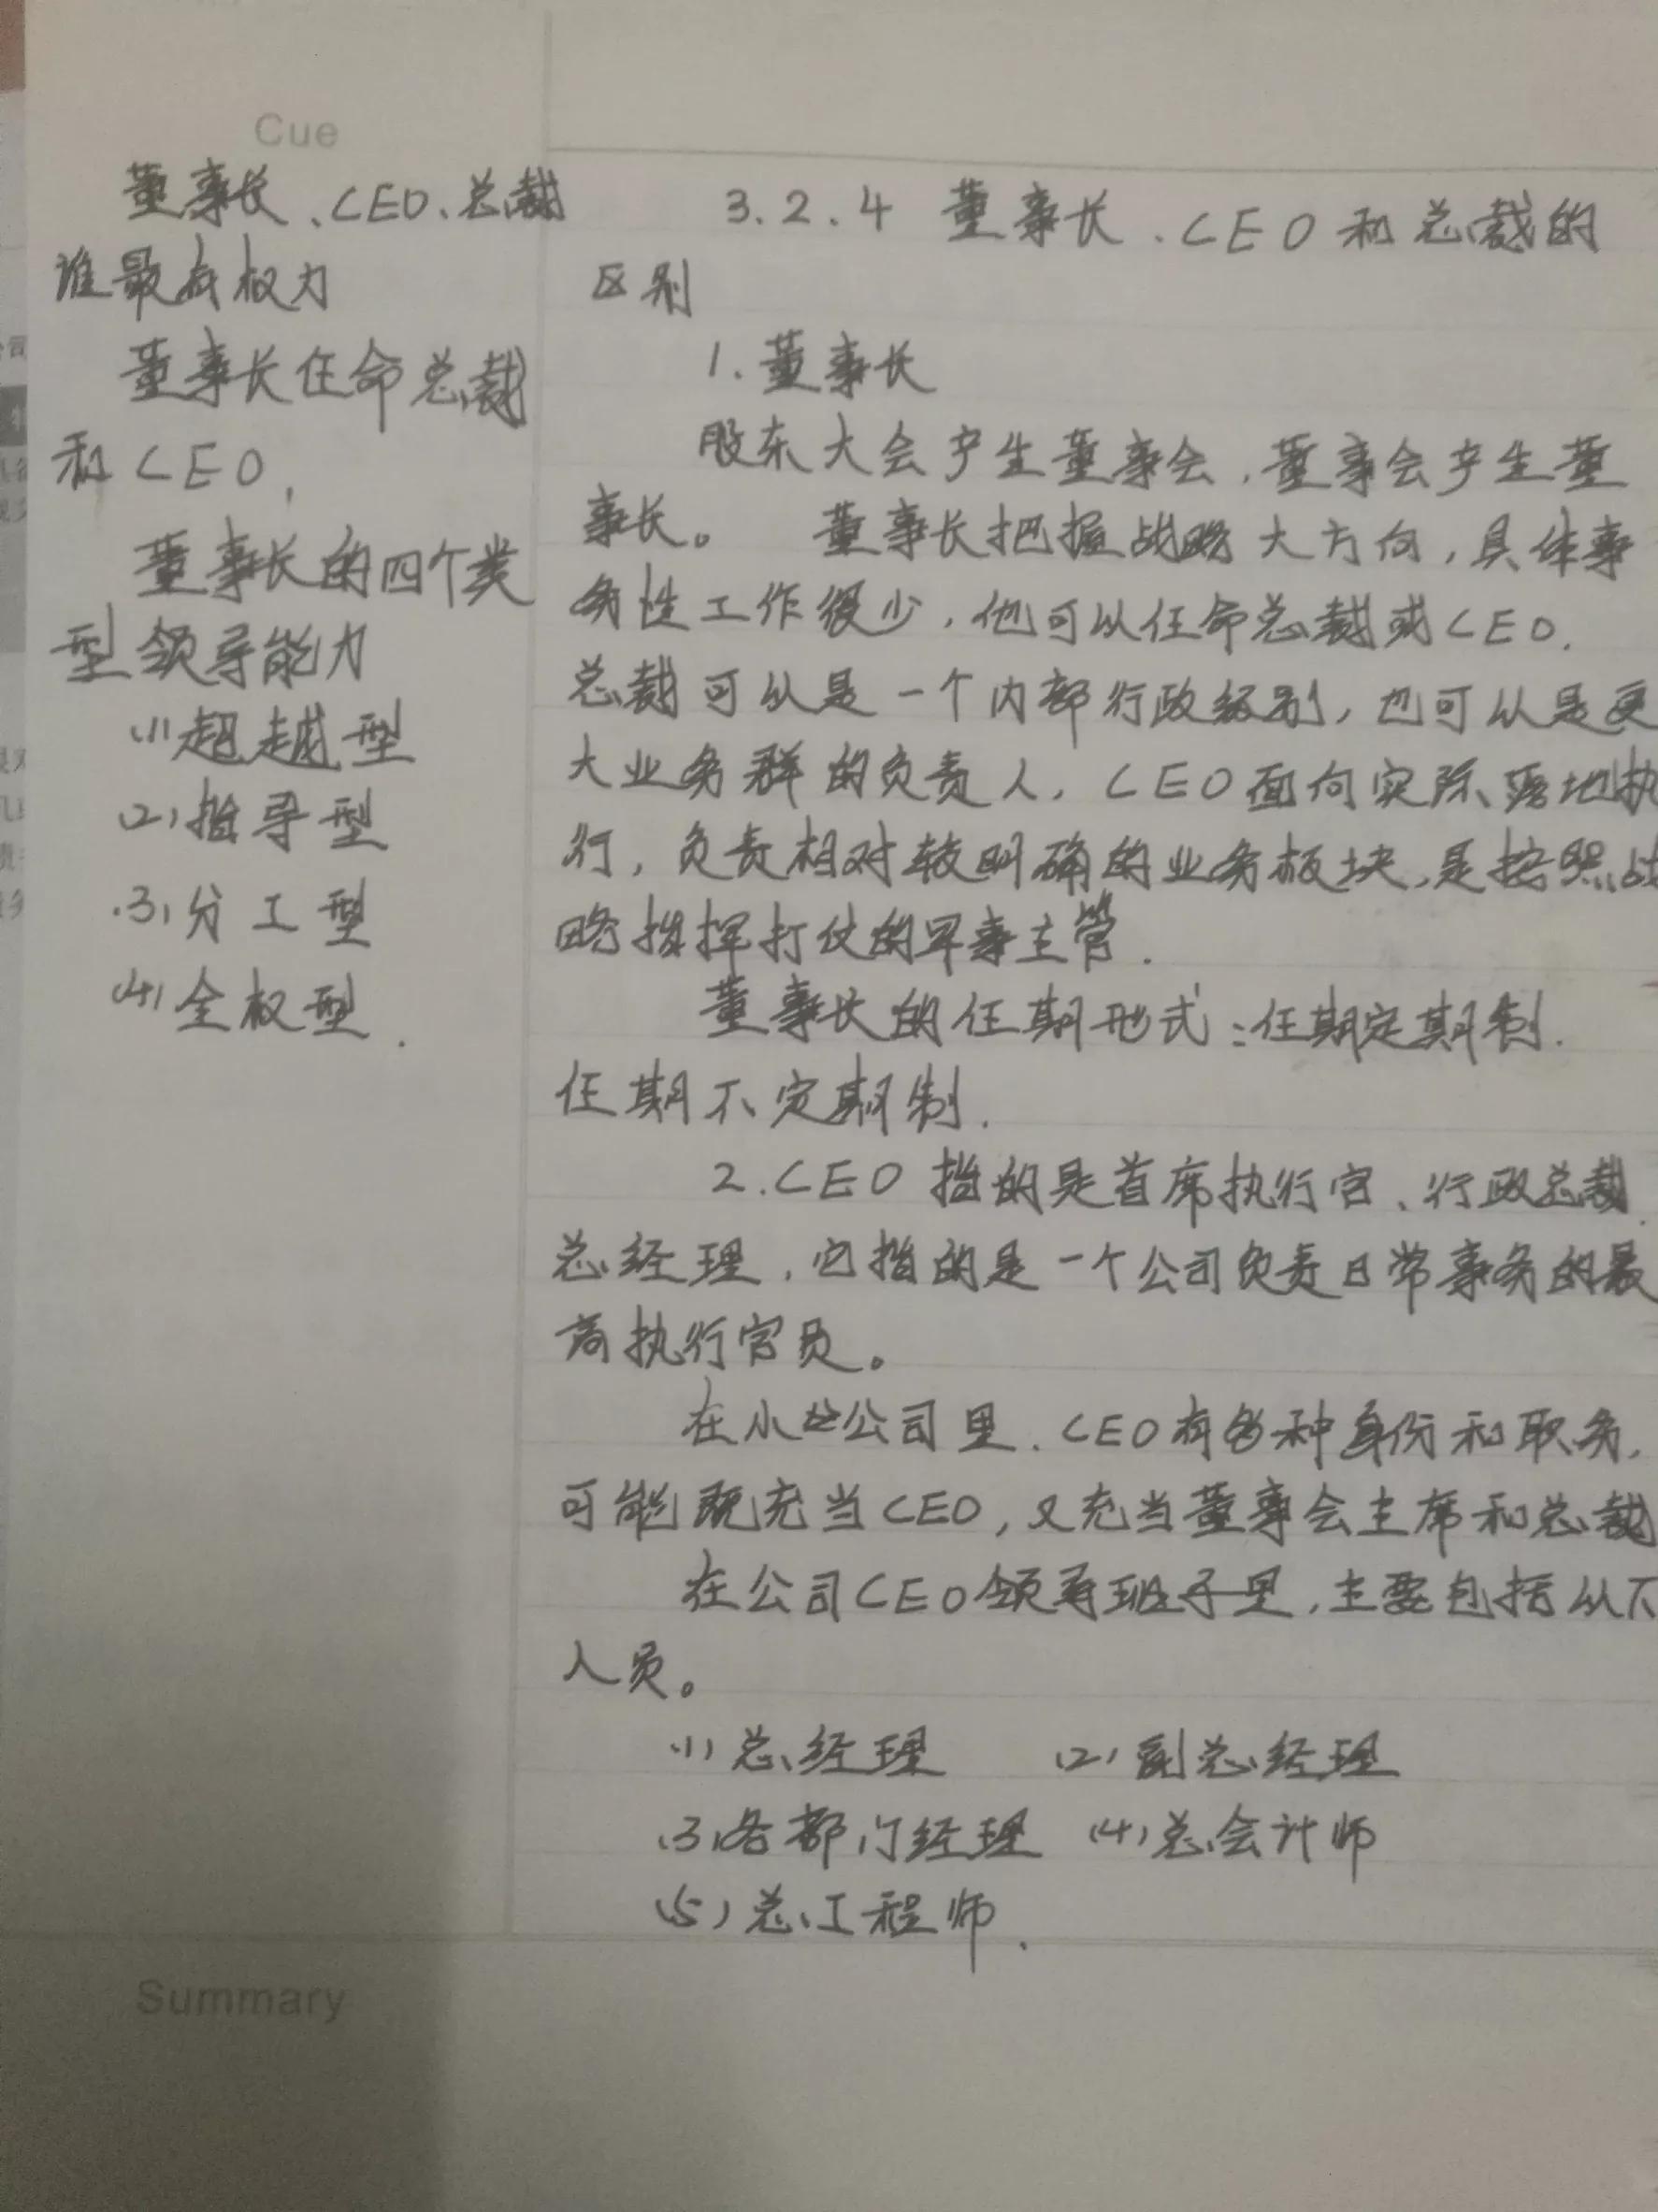 Cue
董事长、CEO、总裁
谁最有权力
董事长任命总裁
和CEO,
董事长的四个类
型领导能力
(1)超越型
(2)指导型
(3)分工型
(4)全权型.
3.2.4 董事长、CEO和总裁的
区别
1.董事长
股东大会产生董事会,董事会产生董
事长。 董事长把握战略大方向,具体事
务性工作很少,他可以任命总裁或CEO.
总裁可以是一个内部行政级别,也可以是更
大业务群的负责人,CEO面向实际、落地执
行,负责相对较明确的业务板块,是按照战
略指挥打仗的军事主管.
董事长的任期形式:任期定期制.
任期不定期制.
2.CEO指的是首席执行官、行政总裁、
总经理,它指的是一个公司负责日常事务的最
高执行官员。
在小公司里,CEO有多种身份和职务,
可能既充当CEO,又充当董事会主席和总裁
在公司CEO领导班子里,主要包括以下
人员。
(1)总经理 (2)副总经理
(3)各部门经理 (4)总会计师
(5)总工程师.
Summary